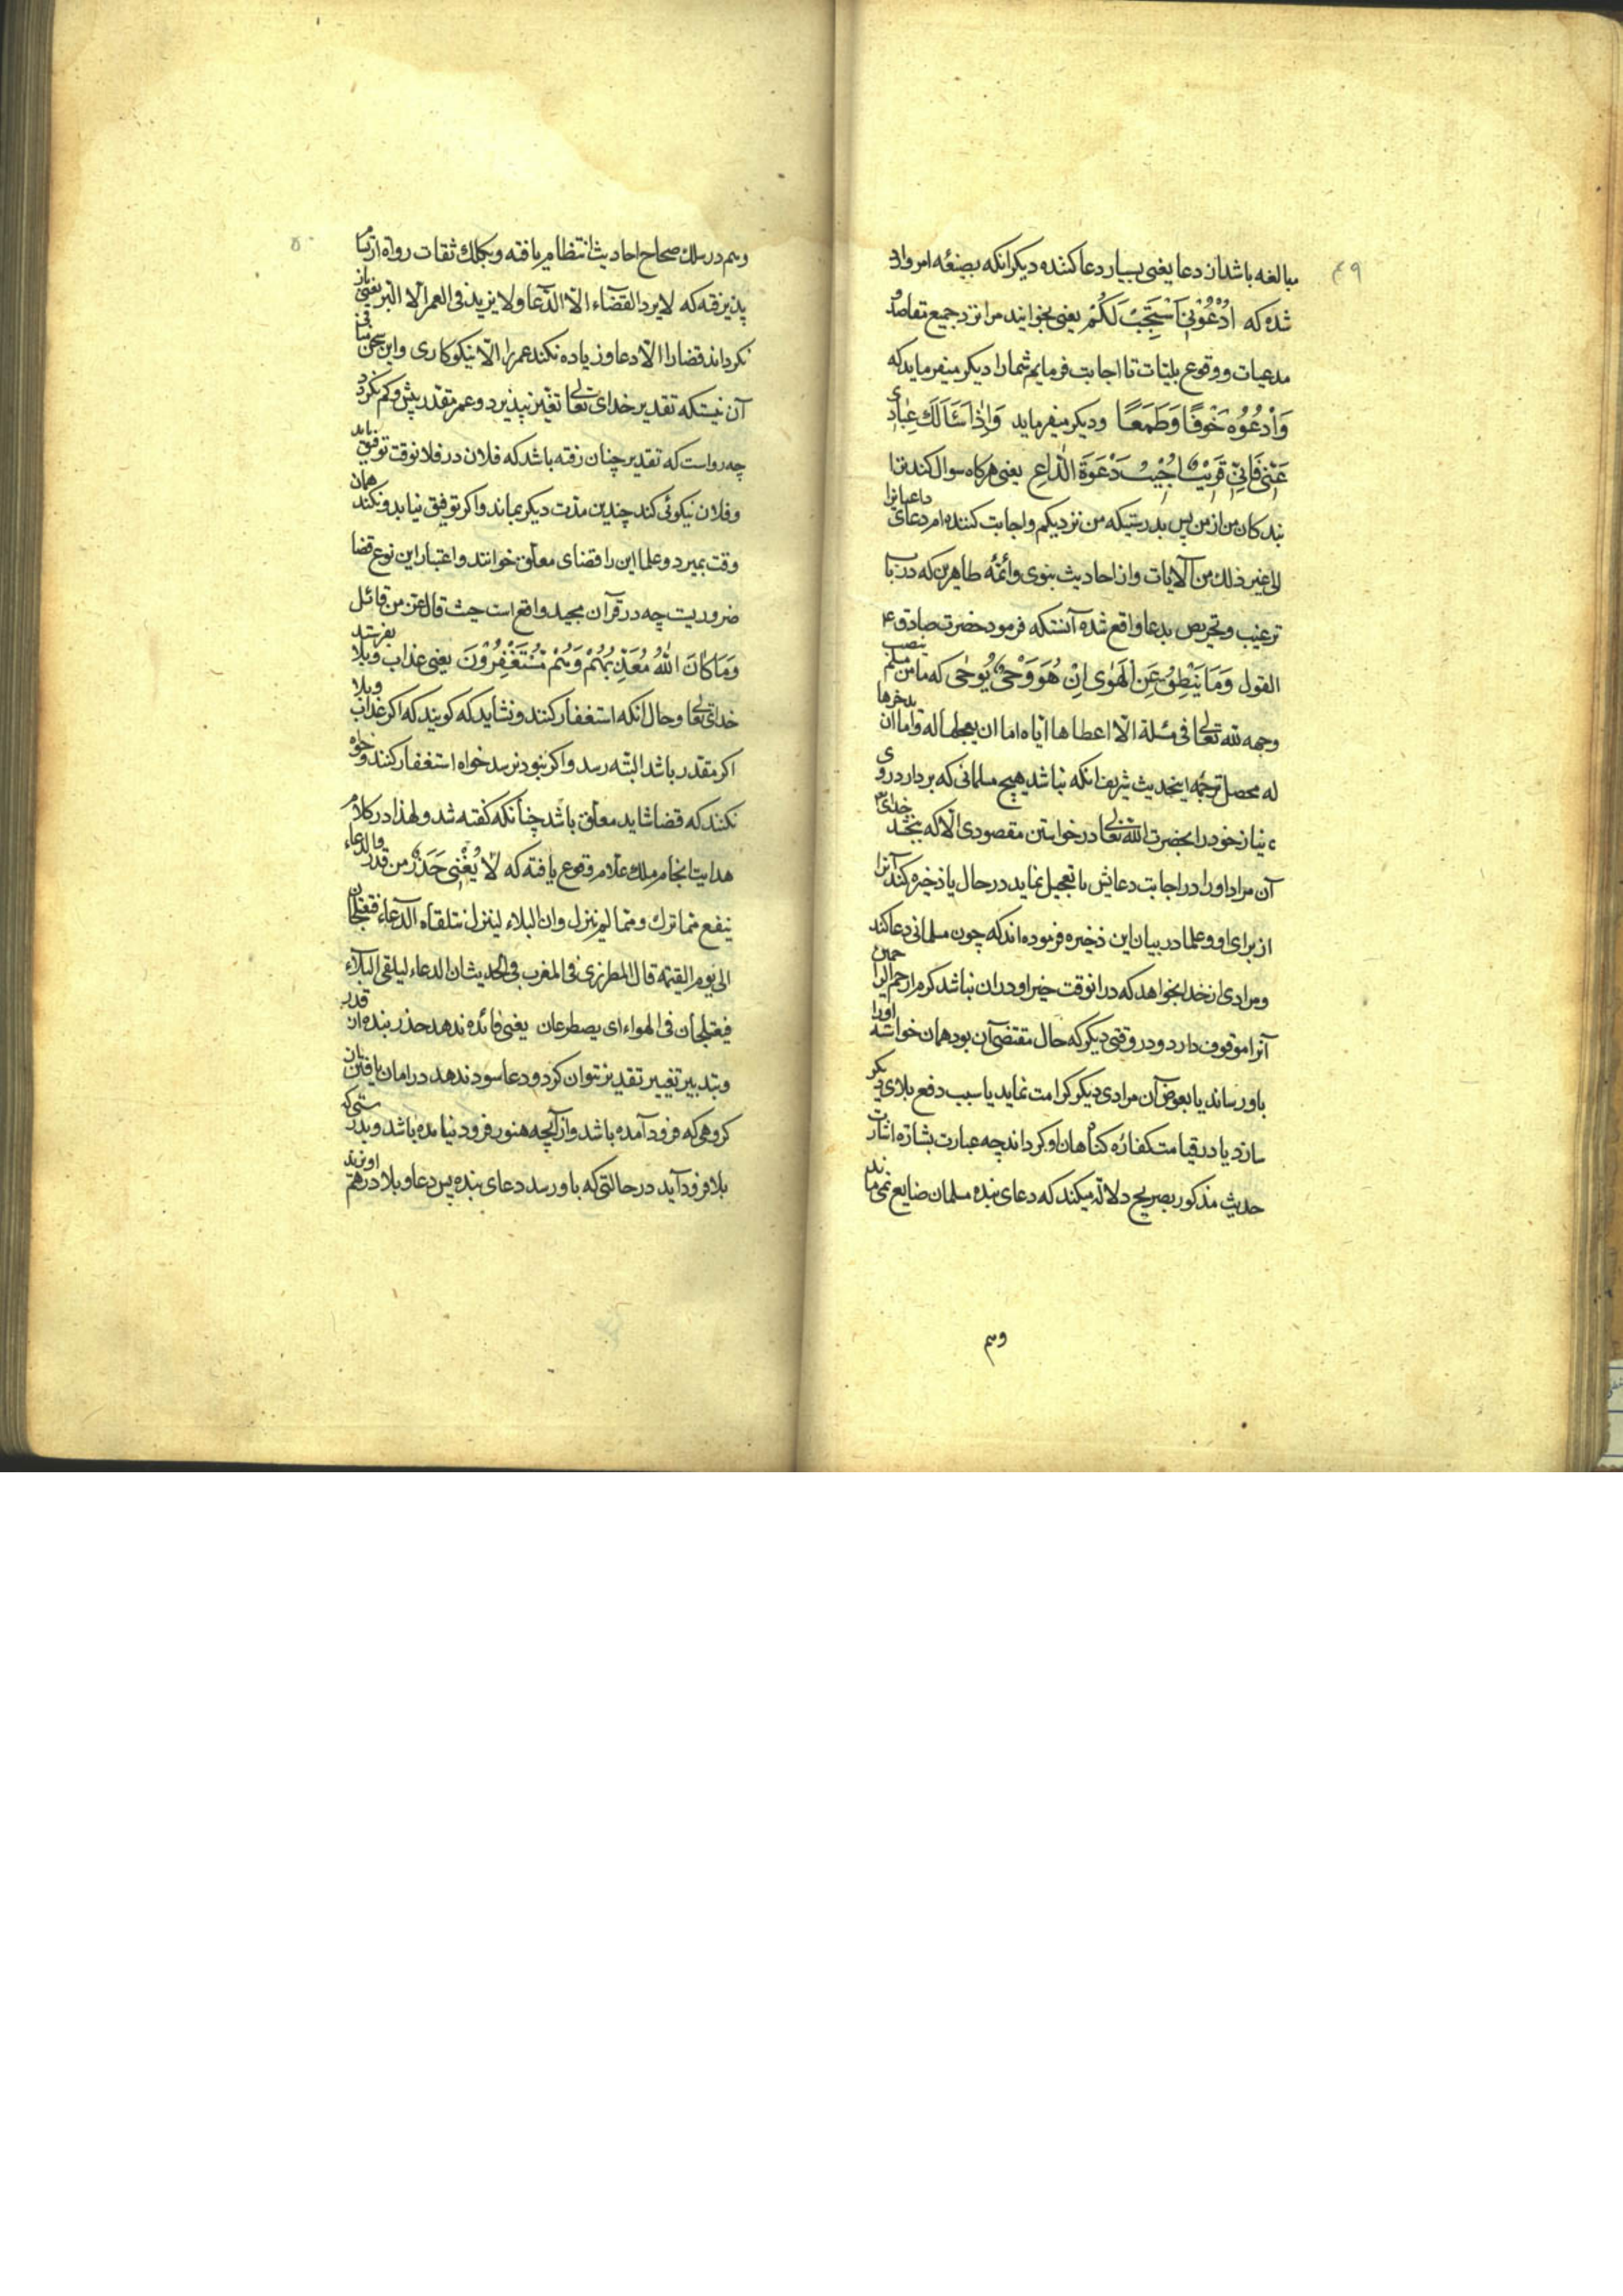 ۴۹
مبالغه باشد از دعا یعنی بسیار دعا کننده دیگر انکه بصیغه امر وارد
شده که اُدْعُوْنِیْ اَسْتَجِبْ لَکُمْ یعنی بخوانید مرا نزد جمیع مقاصد و
مدعیات و وقوع بلیّات تا اجابت فرمایم شما را دیگر میفرماید که
وَادْعُوْهُ خَوْفًا وَطَمَعًا ودیگر میفرماید وَاِذَا سَئَاَلَكَ عِبَادِی
عَنّی فَاِنّی قَرِیْبٌ اُجِیْبُ دَعْوَةَ الدّاعِ یعنی هرکاه سوال کنند ترا
بندکان من از من پس بدرستیکه من نزدیکم و اجابت کننده ام دعای داعیانرا
الی غیر ذلك من الایات و از احادیث نبوی و ائمّه طاهرین که در باب
ترغیب و تحریص بدعا واقع شده آنستکه فرمود حضرت صادق ۴
القول وَمَا یَنْطِقُ عَنِ الْهَوٰی اِنْ هُوَ وَحْیٌ یُوْحٰی که ما من مسلم ینصب
وجهه لله تعالی فی مسئلة الّا اعطاها ایّاه اما ان یعجلها له واما ان یدخرها
له محصل ترجمه اینحدیث شریف انکه نباشد هیچ مسلمانی که بردارد روی
نیاز خود را بحضرت الله تعالی در خواستن مقصودی الّا که ببخشد خدای
آن مراد او را در اجابت دعایش یا تعجیل نماید در حال یا ذخیره کند آنرا
از برای او و علما در بیان این ذخیره فرموده اند که چون مسلمانی دعا کند
و مرادی از خدا بخواهد که در انوقت خیر او در ان نباشد کرم ارحم الراحمین
آنرا موقوف دارد و در وقتی دیگر که حال مقتضی آن بود همان خواسته اورا
باو رساند یا بعوض آن مرادی دیگر کرامت نماید یا سبب دفع بلای دیگر
سازد یا در قیامت کفّاره کناهان او کرداند چه عبارت بشارة اشارت
حدیث مذکور بصریح دلالة میکند که دعای بنده مسلمان ضایع نمی ماند
وهم
۵۰
وهم در سلك صحاح احادیث انتظام یافته و بکلك ثقات رواه ارتسام
پذیرفته که لا یرد القضاء الّا الدّعا ولا یزید فی العمر الّا البر یعنی باز
نکرداند قضا را الّا دعا و زیاده نکند عمر را الّا نیکوکاری و این سخن منافی
آن نیستکه تقدیر خدای تعالی تغیّر نپذیرد و عمر مقدر بیش و کم نکردد
چه رواست که تقدیر چنان رفته باشد که فلان در فلانوقت توفیق یابد
و فلان نیکوئی کند چندین مدّت دیگر بماند و اکر توفیق نیابد و نکند همان
وقت بمیرد و علما این را قضای معلّق خوانند و اعتبار این نوع قضا
ضروریست چه در قرآن مجید واقع است حیث قال عزّ من قائل
وَمَا کَانَ اللهُ مُعَذِّبَهُمْ وَهُمْ یَسْتَغْفِرُوْنَ یعنی عذاب و بلا نفرستد
خدای تعالی و حال انکه استغفار کنند و نشاید که کویند که اکر عذاب و بلا
اکر مقدر باشد البته رسد و اکر نبود نرسد خواه استغفار کنند و خواه
نکنند که قضا شاید معلّق باشد چنانکه کفته شد و لهذا در کلام
هدایت انجام ملك علّام وقوع یافته که لَا یُغْنِی حَذَرٌ من قدر والدعاء
ینفع مما نزل و مما لم ینزل و ان البلاء لینزل فتلقاه الدّعاء فیعتلجان
الی یوم القیمة قال المطرزی فی المغرب فی الحدیث ان الدعاء لیلقی البلاء
فیعتلجان فی الهواء ای یصطرعان یعنی فائده ندهد حذر بنده از قدر
و بتدبیر تغییر تقدیر نتوان کرد و دعا سود ندهد در امان یافتن از آن
کروهی که فرود آمده باشد و از آنچه هنوز فرود نیامده باشد و بدرستی که
بلا فرود آید در حالتی که باو رسد دعای بنده پس دعا و بلا در هم آویزند